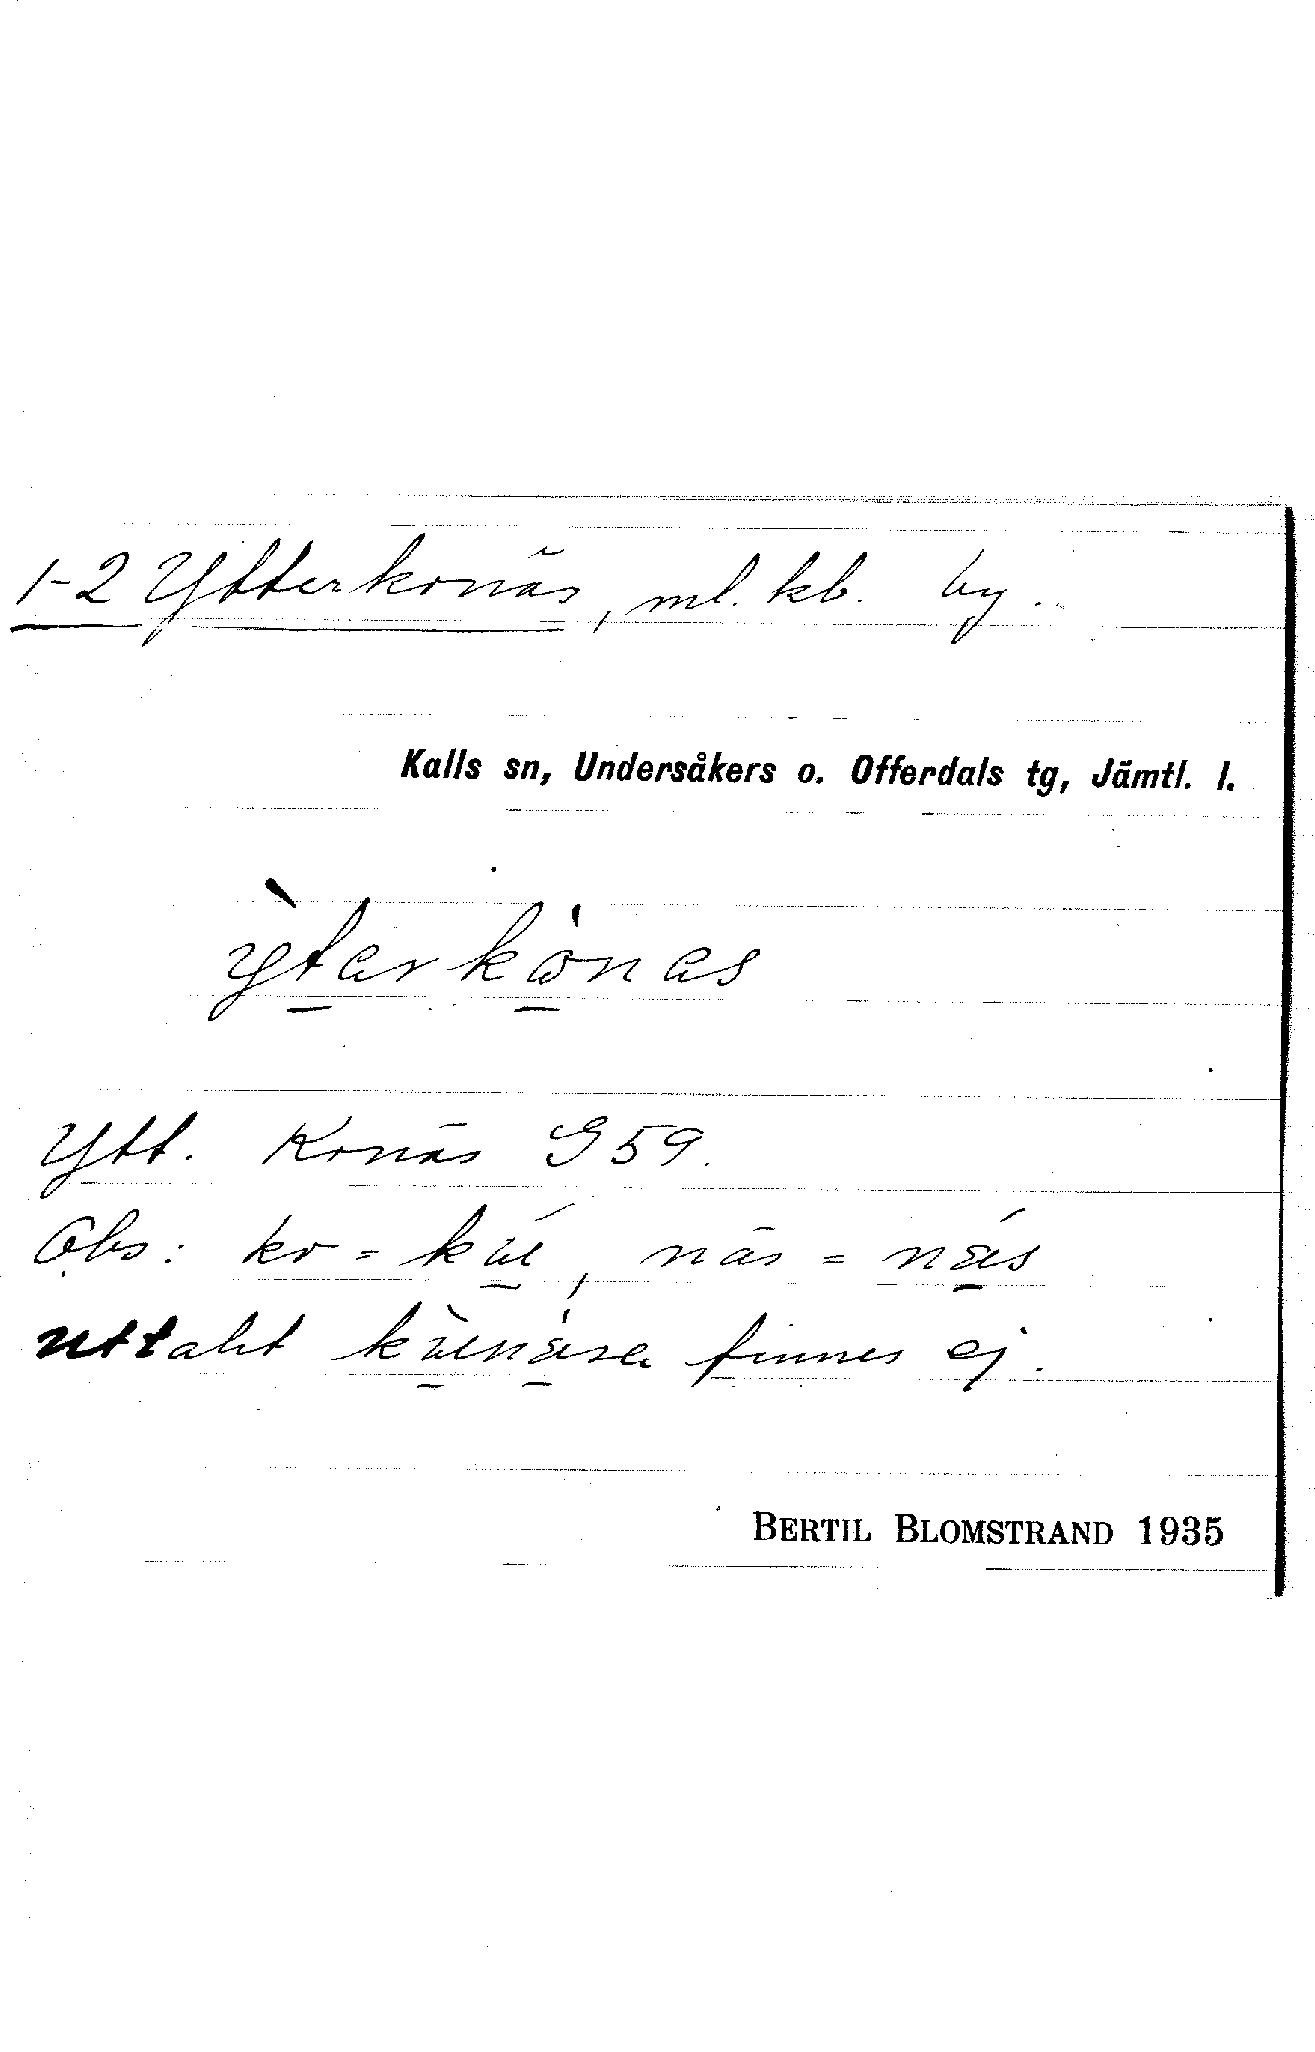 1-2 Ytterkonäs, ml. kb. by.
Kalls sn, Undersåkers o. Offerdals tg, Jämtl. l.
Ytt. Konäs G 59.
Obs: ko = , näs = näs
uttalet finnes ej.
BERTIL BLOMSTRAND 1935